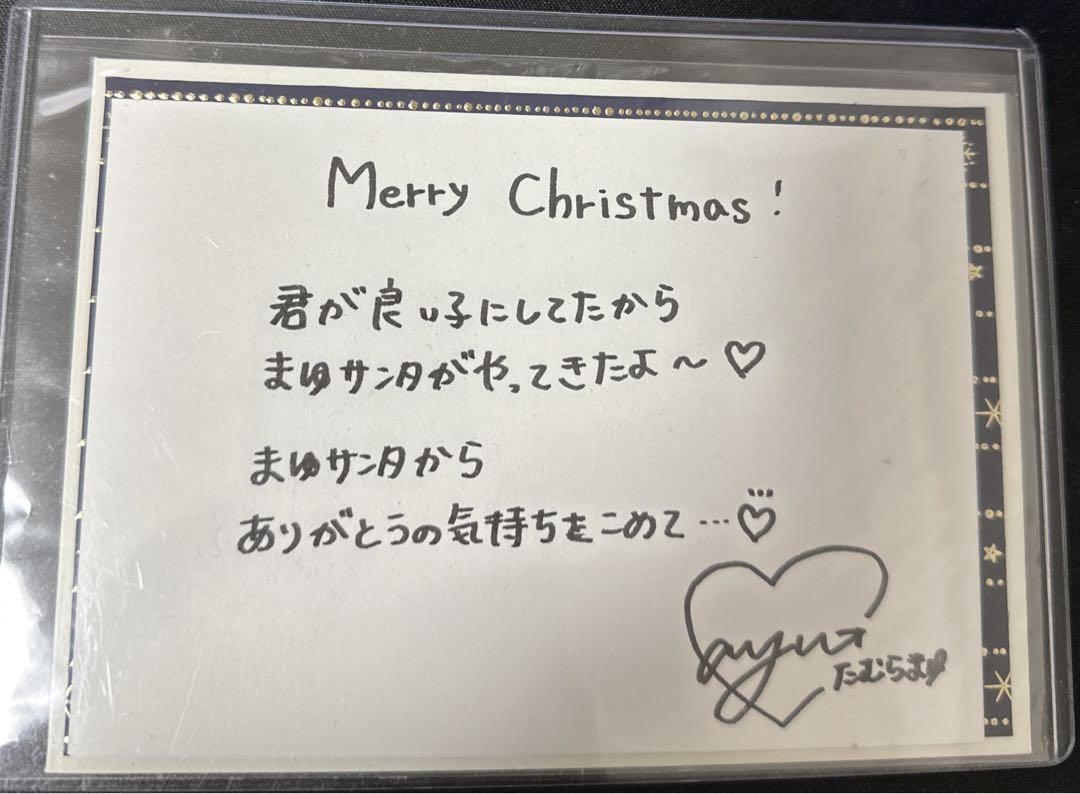 Merry Christmas!
君が良い子にしてたから
まゆサンタがやってきたよ〜♡
まゆサンタから
ありがとうの気持ちをこめて…♡
mayu
たむらまゆ